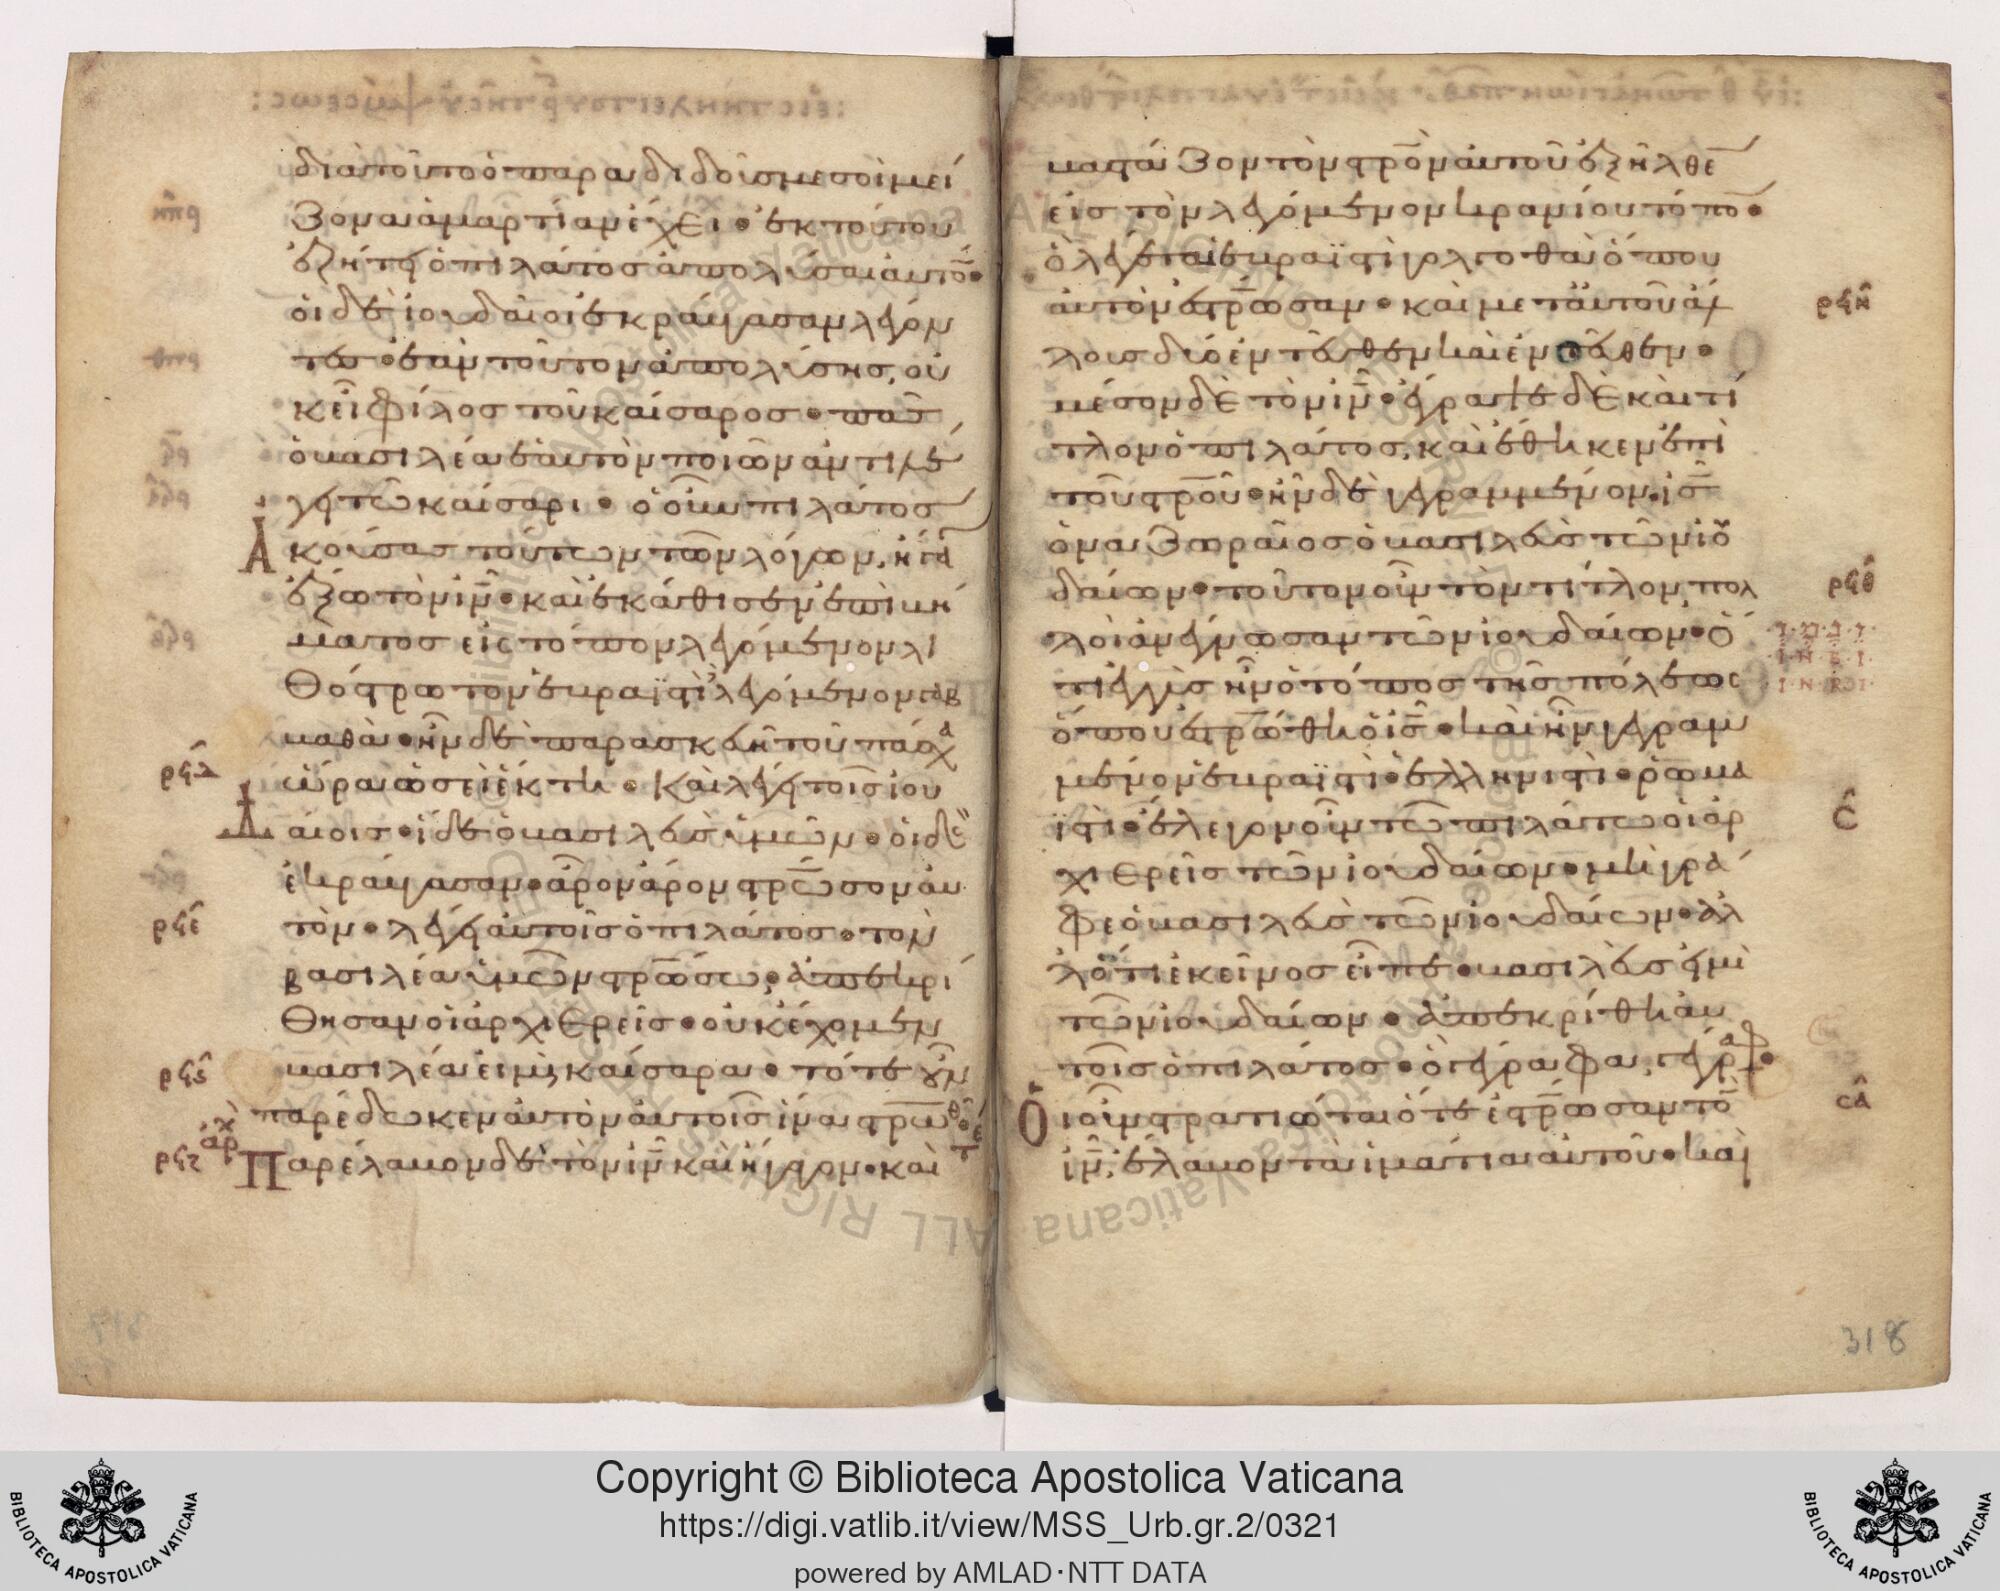 διατοῦτο ὁ παραδιδούς με σοὶ μεί
ζονα ἁμαρτίαν ἔχει· ἐκ τούτου
ἐζήτει ὁ πιλάτος ἀπολῦσαι αὐτο̅·
οἱ δὲ ἰουδαῖοι ἐκραύγασαν λέγον
τες· ἐὰν τοῦτον ἀπολύσης, οὐ
κ εἶ φίλος τοῦ καίσαρος· πᾶς
ὁ βασιλέα ἑαυτὸν ποιῶν ἀντιλέ
γει τῶ καίσαρι· ὁ οὖν πιλάτος
Ἀκούσας τούτων τῶν λόγων, ἤγα
ἔξω τὸν ἰν̅· καὶ ἐκάθισεν ἐπὶ βή
ματος εἰς τόπον λεγόμενον λι
θόστρωτον ἑβραϊστὶ λεγόμενον γαβ
βαθᾶ· ἦν δὲ παρασκευὴ τοῦ πάσχα
ὥρα ὡσεὶ ἕκτη· καὶ λέγει τοῖς ἰου
Δαίοις· ἴδε ὁ βασιλεὺς ὑμῶν· οἱ δὲ
ἐκραύγασαν· ἆρον ἆρον στρ̅ωσον αὐ
τὸν· λέγει αὐτοῖς ὁ πιλάτος· τὸν
βασιλέα ὑμῶν στρ̅ώσω· ἀπεκρί
θησαν οἱ ἀρχιερεῖς· οὐκ ἔχομεν
βασιλέα εἰ μὴ καίσαρα· τότε οὖν
παρέδωκεν αὐτὸν αὐτοῖς ἵνα στρ̅ωθῆ·
Παρέλαβον δὲ τὸν ἰν̅ καὶ ἤγαγον· καὶ
ρπη
ρπθ
ρϟ
ρϟα
ρϟδ
ρϟε
ρϟς
ἀρχ
ρϟζ
βαστάζων τὸν στρ̅ὸν αὐτοῦ ἐξῆλθε̅
εἰς τὸν λεγόμενον κρανίου τόπο̅·
ὃ λέγεται ἑβραϊστὶ γολγοθᾶ ὅπου
αὐτὸν ἐστρ̅ωσαν· καὶ μετ᾽ αὐτοῦ ἄλ
λους δύο ἐντεῦθεν καὶ ἐντεῦθεν·
μέσον δὲ τὸν ἰν̅· ἔγραψε δὲ καὶ τί
τλον ὁ πιλάτος, καὶ ἔθηκεν ἐπὶ
τοῦ στρ̅οῦ· ἦν δὲ γεγραμμένον· ἰς̅
ὁ ναζωραῖος ὁ βασιλεὺς τῶν ἰου
δαίων· τοῦτον οὖν τὸν τίτλον πολ
λοὶ ἀνέγνωσαν τῶν ἰουδαίων· ὅ
τι ἐγγὺς ἦν ὁ τόπος τῆς πόλεως
ὅπου ἐστρ̅ώθη ὁ ἰς̅· καὶ ἦν γεγραμ
μένον ἑβραϊστὶ· ἑλληνιστὶ· ῥωμα
ϊστὶ· ἔλεγον οὖν τῶ πιλάτω οἱ ἀρ
χιερεῖς τῶν ἰουδαίων· μὴ γρά
φε ὁ βασιλεὺς τῶν ἰουδαίων· ἀλ
λ᾽ ὅτι ἐκεῖνος εἶπε· βασιλεύς εἰμὶ
τῶν ἰουδαίων· ἀπεκρίθη αὐ
τοῖς ὁ πιλάτος· ὃ γέγραφα, γέγραφα·
Οἱ οὖν στρατιῶται ὅτε ἐστρ̅ωσαν το̅
ἰν̅, ἔλαβον τὰ ἱμάτια αὐτοῦ· καὶ
ρϟη
ρϟθ
Ι·Ν·Β·Ι·
Ι·Ν·R·I·
σ
σα
318
Copyright © Biblioteca Apostolica Vaticana
https://digi.vatlib.it/view/MSS_Urb.gr.2/0321
powered by AMLAD·NTT DATA
BIBLIOTECA APOSTOLICA VATICANA
BIBLIOTECA APOSTOLICA VATICANA